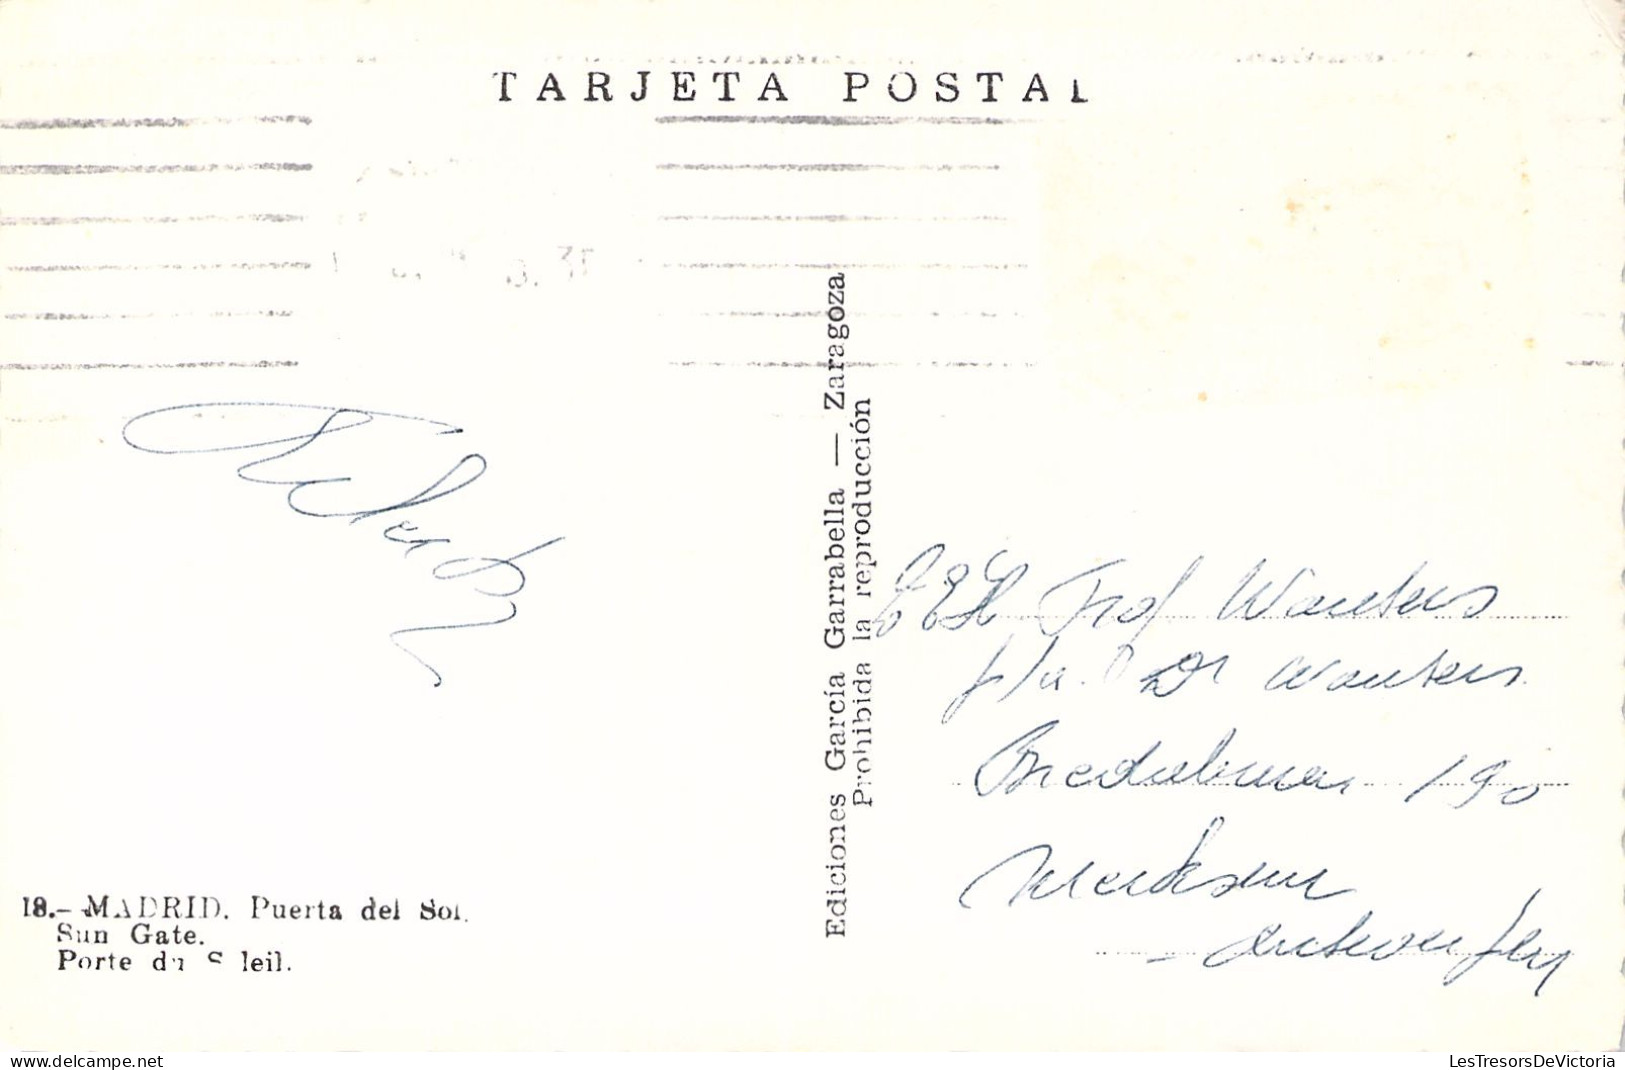 TARJETA POSTAL
Ediciones García Garrabella — Zaragoza
Prohibida la reproducción
Prof Wouters
Dr Wouters
Bredabaan 190
Merksem
- Antwerpen
18.- MADRID. Puerta del Sol.
Sun Gate.
Porte du S leil.
LesTresorsDeVictoria